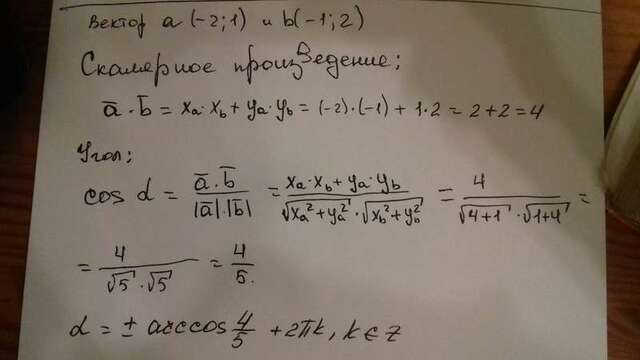 Вектор a (-2;1) и b(-1;2)
Скалярное произведение;
a̅·b̅ = xa·xb + ya·yb = (-2)·(-1) + 1·2 = 2+2 = 4
Угол;
cos α = a̅·b̅ / |a̅|·|b̅| = xa·xb + ya·yb / √xa²+ya² · √xb²+yb² = 4 / √4+1 · √1+4 =
= 4 / √5 · √5 = 4/5.
α = ± arccos 4/5 + 2πk, k∈z